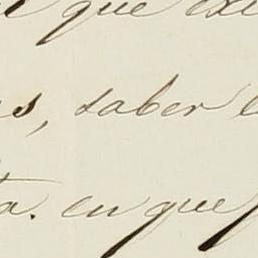 que
s, saber
a. en que